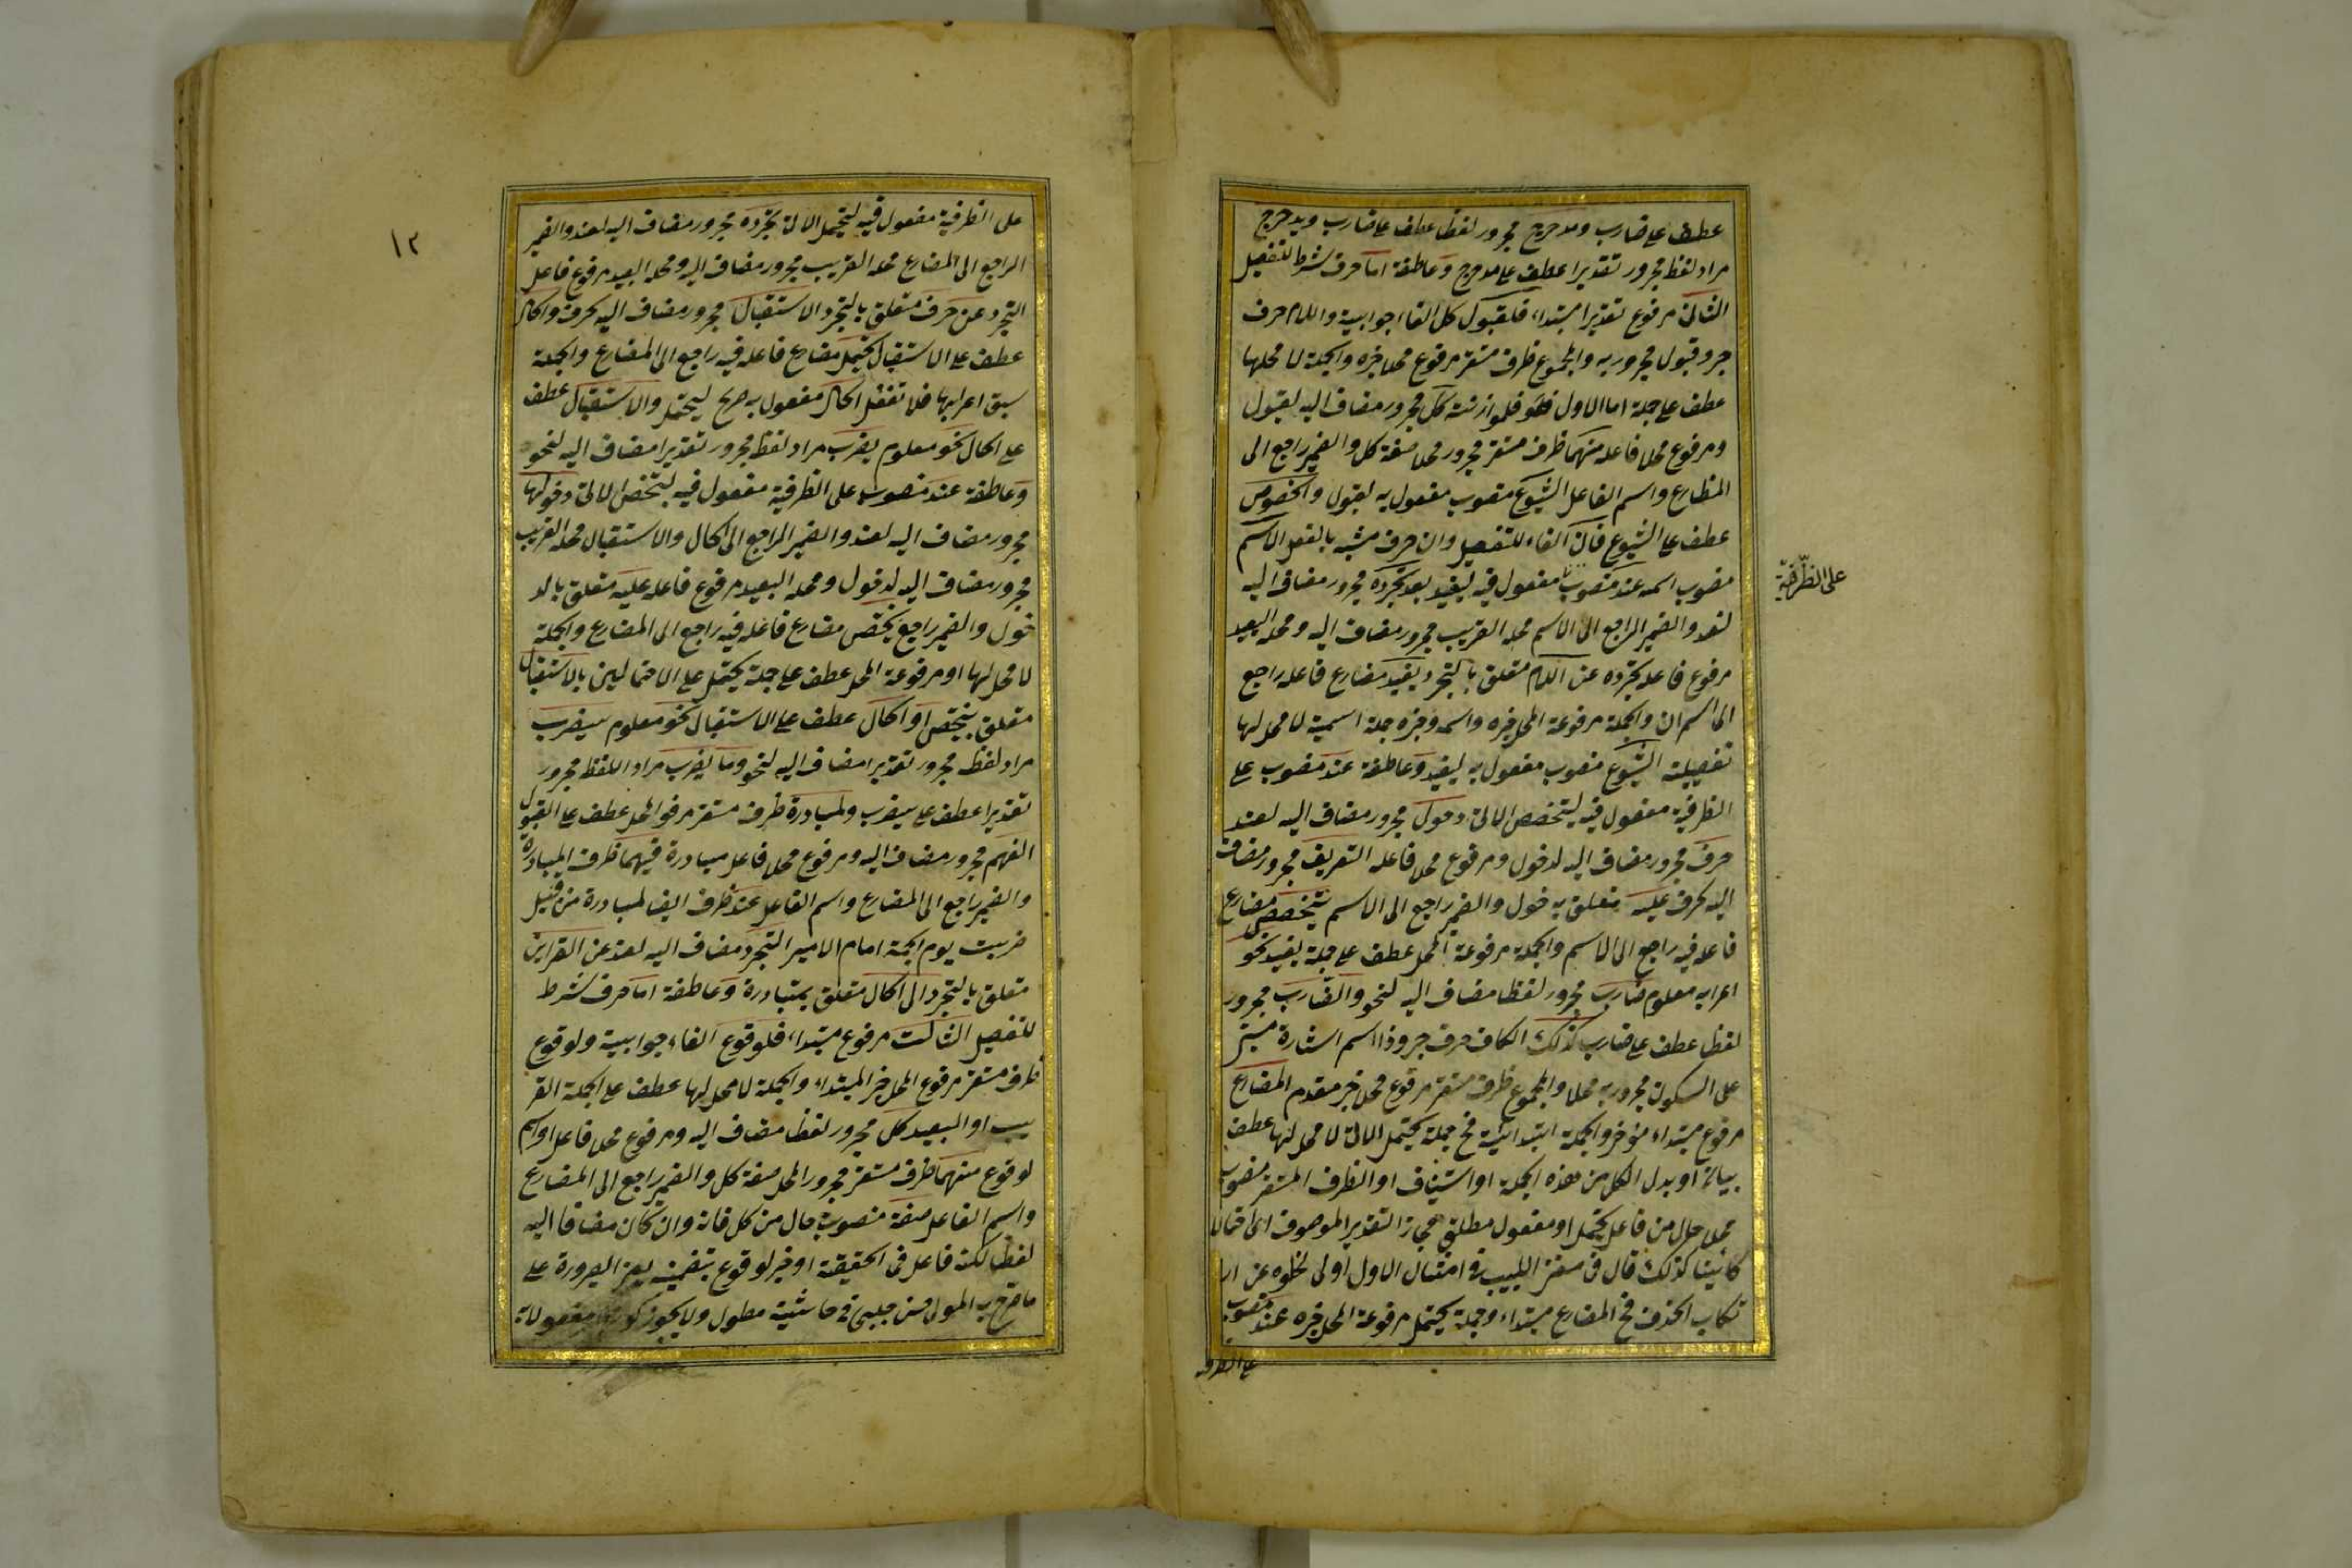 عطف على ضارب ومدحرج مجرور لفظا عطف على ضارب ويدحرج
مراد لفظ مجرور تقديرا عطف على مدحرج وعاطفة اما حرف شرط للتفصيل
الثانى مرفوع تقديرا مبتداء فلقبول كل الفاء جوابية واللام حرف
جر وقبول مجرور به والمجموع ظرف مستقر مرفوع محلا خبره والجملة لا محلها
عطف على جملة اما الاول فهو فلموازنته كل مجرور مضاف اليه لقبول
ومرفوع محلا فاعله منهما ظرف مستقر مجرور محلا صفة كل والضمير راجع الى
المظارع واسم الفاعل الشيوع منصوب مفعول به لقبول والخصوص
عطف على الشيوع فان الفاء للتفصيل وان حرف مشبه بالفعل الاسم
منصوب اسمه عند منصوب مفعول فيه ليفيد بعد تجرده مجرور مضاف اليه
على الظرفية
لعند والضمير الراجع الى الاسم محله القريب مجرور مضاف اليه ومحله البعيد
مرفوع فاعله تجرده عن اللام متعلق بالتجرد يفيد مضارع فاعله راجع
الى اسم ان والجملة مرفوعة المحل خبره واسمه وخبره جملة اسمية لا محل لها
تفصيلية الشيوع منصوب مفعول به ليفيد وعاطفة عند منصوب على
الظرفية مفعول فيه ليتخصص الاتى دخول مجرور مضاف اليه لعند
حرف مجرور مضاف اليه لدخول ومرفوع محلا فاعله التعريف مجرور مضاف
اليه لحرف عليه متعلق بدخول والضمير راجع الى الاسم يتخصص مضارع
فاعله فيه راجع الى الاسم والجملة مرفوعة المحل عطف على جملة يفيد نحو
اعرابه معلوم ضارب مجرور لفظا مضاف اليه لنحو والضارب مجرور
لفظا عطف على ضارب كذلك الكاف حرف جر وذا اسم اشارة مبنى
على السكون مجرور به محلا والمجموع ظرف مستقر مرفوع محلا خبر مقدم المضارع
مرفوع مبتداء مؤخر والجملة ابتدائية فح جملة يحتمل الاتى لا محل لها عطف
بيان او بدل الكل من هذه الجملة او استيناف او الظرف المستقر منصوب
محلا حال من فاعل يحتمل او مفعول مطلق مجازا لتقدير الموصوف اى احتمالا
كائنا كذلك قال فى مغنى اللبيب فى امثال الاول اولى لخلوه عن ار
تكاب الحذف فح المضارع مبتداء وجملة يحتمل مرفوعة المحل خبره عند منصوب
على الظرفـ
١٢
على الظرفية مفعول فيه ليحتمل الاتى تجرده مجرور مضاف اليه لعند والضمير
الراجع الى المضارع محله القريب مجرور مضاف اليه ومحله البعيد مرفوع فاعل
التجرد عن حرف متعلق بالتجرد الاستقبال مجرور مضاف اليه لحرف والحال
عطف على الاستقبال يحتمل مضارع فاعله فيه راجع الى المضارع والجملة
سبق اعرابها فلا تغفل الحال مفعول به صريح ليحتمل والاستقبال عطف
على الحال نحو معلوم يضرب مراد لفظ مجرور تقديرا مضاف اليه لنحو
وعاطفة عند منصوب على الظرفية مفعول فيه ليختص الاتى دخولها
مجرور مضاف اليه لعند والضمير الراجع الى الحال والاستقبال محله القريب
مجرور مضاف اليه لدخول ومحله البعيد مرفوع فاعله عليه متعلق بالد
خول والضمير راجع يختص مضارع فاعله فيه راجع الى المضارع والجملة
لا محل لها او مرفوعة المحل عطف على جملة يحتمل على الاحتمالين بالاستقبال
متعلق بيختص او الحال عطف على الاستقبال نحو معلوم سيضرب
مراد لفظه مجرور تقديرا مضاف اليه لنحو وما يضرب مراد اللفظ مجرور
تقديرا عطف على سيضرب ولمبادرة ظرف مستقر مرفوا المحل عطف على القبول
الفهم مجرور مضاف اليه ومرفوع محلا فاعل مبادرة فيهما ظرف المبادرة
والضمير راجع الى المضارع واسم الفاعل عند ظرف ايضا لمبادرة من قبيل
ضربت يوم الجمعة امام الامير التجرد مضاف اليه لعند عن القراين
متعلق بالتجرد الى الحال متعلق بمتبادرة وعاطفة اما حرف شرط
للتفصيل الثالث مرفوع مبتداء فلوقوع الفاء جوابية ولوقوع
ظرف مستقر مرفوع المحل خبر المبتداء والجملة لا محل لها عطف على الجملة القر
يب او البعيد كل مجرور لفظا مضاف اليه ومرفوع محلا فاعل او اسم
لوقوع منهما ظرف مستقر مجرور المحل صفة كل والضمير راجع الى المضارع
واسم الفاعل صفة منصوب حال من كل فانه وان كان مضافا اليه
لفظا لكنه فاعل فى الحقيقة او خبر لوقوع بتضمينه معنى الصيرورة على
ما صرح به المولى حسن چلبى فى حاشية مطول ولا يجوز كونه مفعولا به